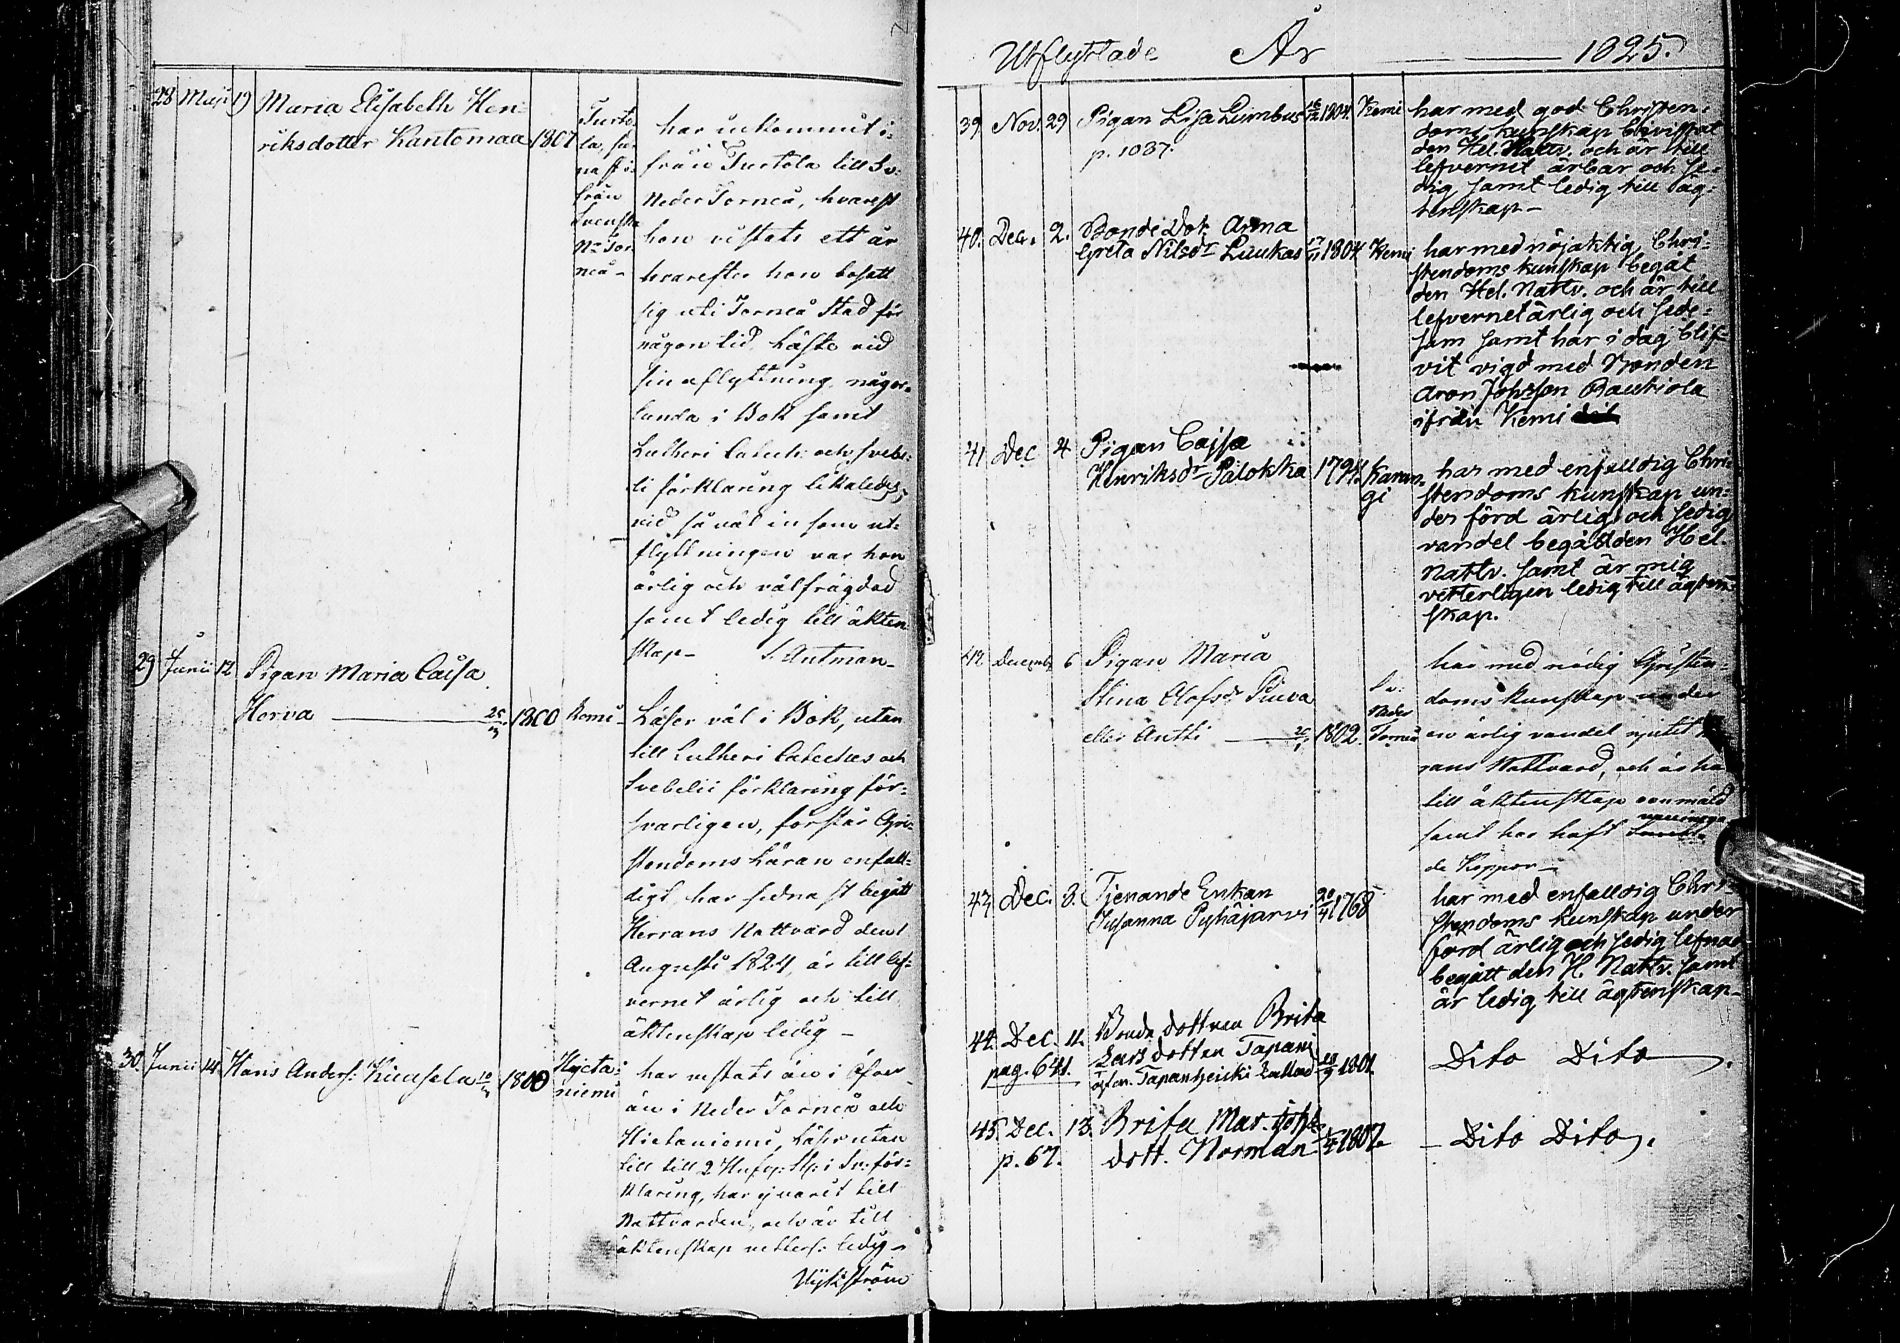 28 Maji 19 Maria Elisabeth Hen-
riksdotter Kantomaa 1807
Turto-
la, se-
från
Svenska
Nr Tor-
neå -
har inkommit i-
från Turtola till Sv:
Neder Torneå, hvarest
hon vistats ett år
hvarefter hon bosatt
sig uti Torneå Stad för
någon tid, läste vid
sin aflyttning någor-
lunda i Bok samt
Lutheri Catech: och Svebe-
lii förklaring likaledes,
vid så väl in som ut-
flyttningen var hon
ärlig och välfrägdad
samt ledig till äkten-
skap -
29 Junii 12 Pigan Maria Caisa
Horva 1800
Läser väl i Bok, utan
till Lutheri Cateches och
Svebelii förklaring för-
svarligen, förstår Chri-
stendoms Läran enfall-
digt, har sednast begått
Herrans Nattvard den 1
Augusti 1824, är till lef-
vernet ärlig och till
äktenskap ledig -
30 Junii 14 Hans Anders: 1800
Hieta-
niemi
har vistats än i Öfver
än i Neder Torneå och
Hietaniemi, Läser utan
till till 2 i Sv: för-
klaring, har ej varit till
Nattvarden, och är till
äktenskap vetterl: ledig -
Utflyttade År 1825.
39. Nov. 29 Pigan Lisa Lumbus 1804. Kemi
p. 1037.
har med god Christen-
doms kunskap bevistat
den Hel. Nattv. och är till
lefvernet ärbar och se-
dig, samt ledig till äg-
tenskap -
40. Dec. 2. Bonde Dot. Anna
Greta Nilsdr Luukas 1804 Kemi
har med nöjaktig Chri-
stendoms kunskap begåt
den Hel. Nattv. och är till
lefvernet ärlig och sede-
sam samt har i dag blif-
vit vigd med Bonden
Aron Johsson Rautiola
ifrån Kemi
41. Dec 4 Pigan Cajsa
Henriksdr Palokka 1794. Karun-
gi
har med enfalldig Chri-
stendoms kunskap un-
der förd ärlig och sedig
vandel begått den Hel.
Nattv. samt är mig
vetterligen ledig till ägten-
skap.
42 December 6 Pigan Maria
Stina Olofsdr Piuva
eller Antti 1802.
Sv:
Neder
Torneå
har med nödig Christen-
doms kunskap under
en ärlig vandel njutit
rans Nattvard, och är
till äktenskap oanmäld
samt har haft
de Koppor -
43. Dec. 8. Tjenande Enkan
Susanna Pyhäjarvi 1768
har med enfalldig Chri-
stendoms kunskap under
förd ärlig och sedig lefnad
begått den H. Nattv. samt
är ledig till ägtenskap -
44. Dec. 11. Bonde dottren Brita
pag. 641. Lars dotter Tapani
Tapanheicki kallad 1801.
Dito Dito
45. Dec. 13. Brita Mar. Joh:
p. 67. dott. Norman 1807.
- Dito Dito.